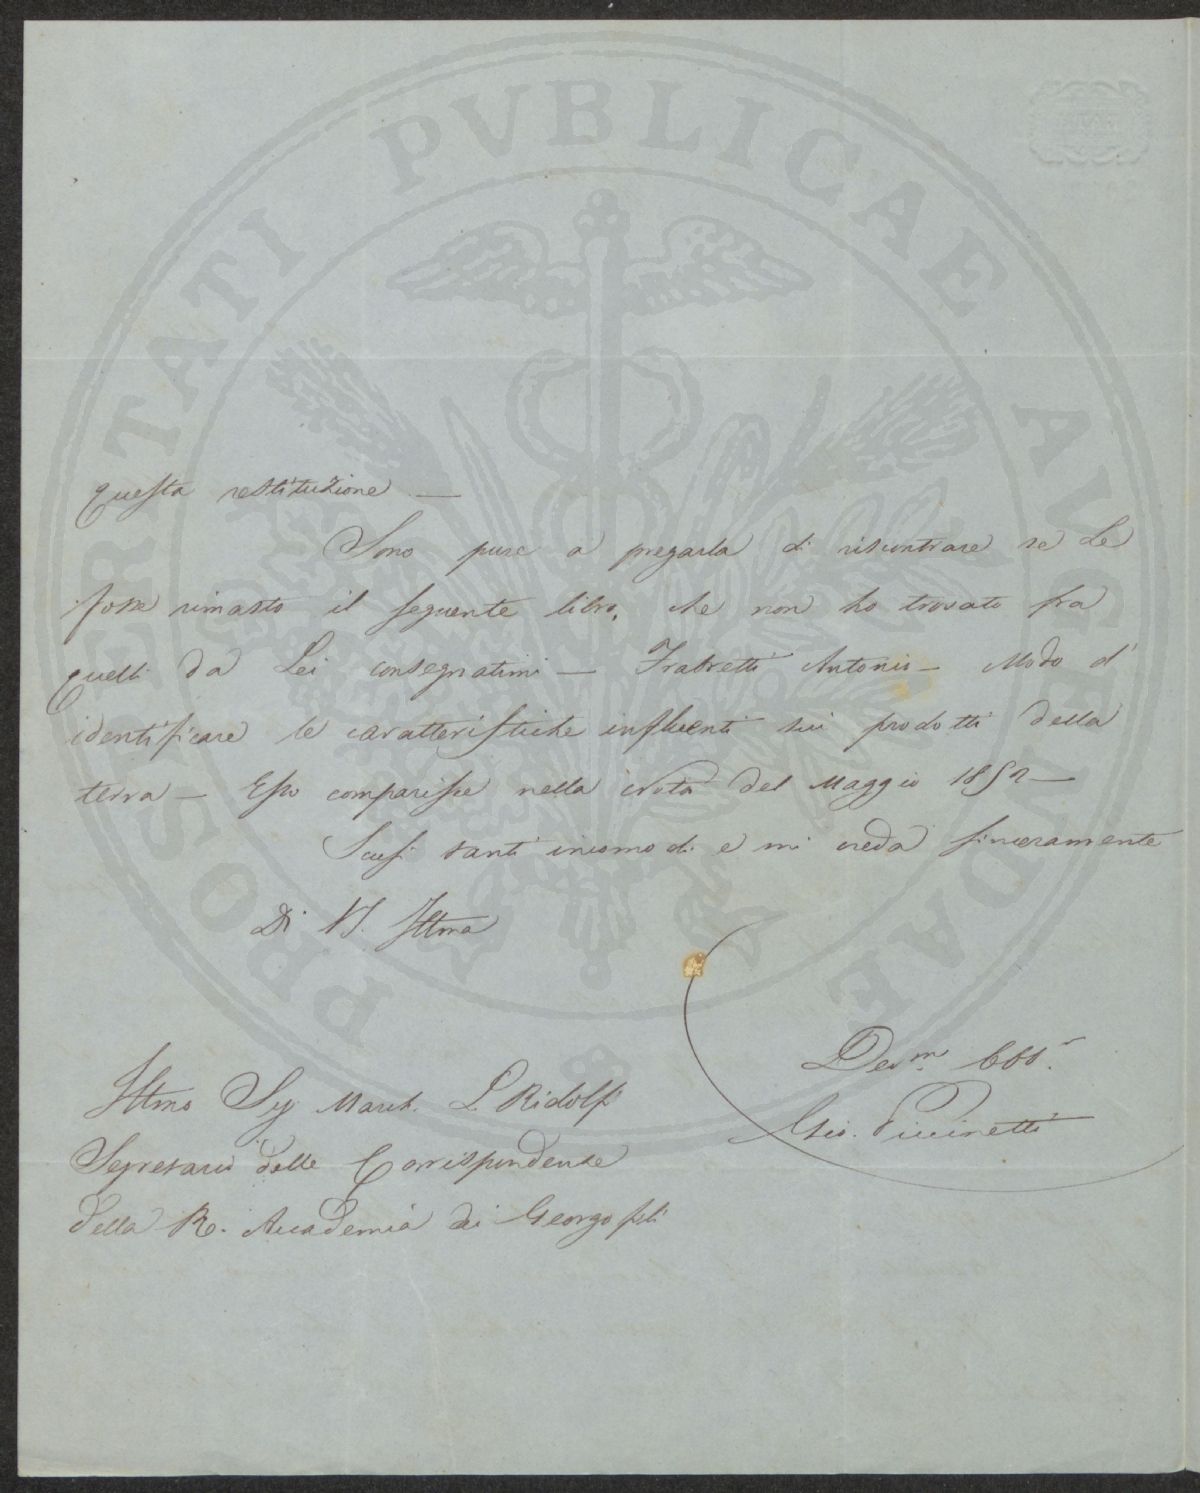 PROSPERITATI PVBLICAE AVGENDAE
questa restituzione —
Sono pure a pregarla di riscontrare se Le
fosse rimasto il seguente libro, che non ho trovato fra
quelli da Lei consegnatimi — Antonio — Modo d'
identificare le caratteristiche influenti sui prodotti della
terra — Esso comparisce nella nota del Maggio 1852 —
Scusi tanti incomodi e mi creda sinceramente
Di VS. Illma
Devm. Obbr.
Gio. Piccinetti
Illmo Sig March. L. Ridolfi
Segretario delle Corrispondenze
della R. Accademia dei Georgofili